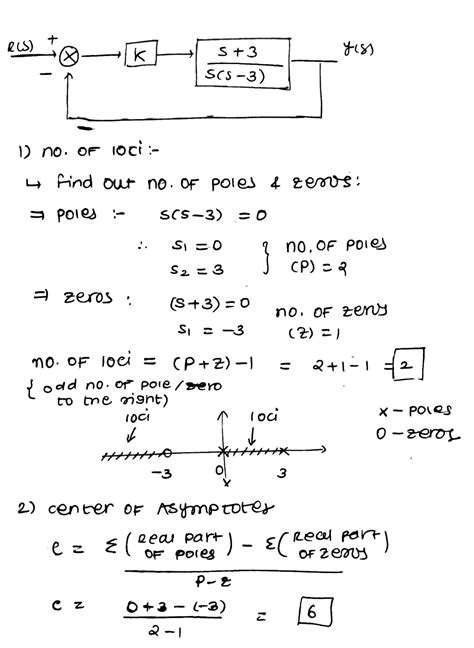 R(S) + K S+3 Y(S)
− S(S-3)
1) no. OF loci :-
↳ find out no. OF poles & zeros:
⇒ poles :- S(S-3) = 0
∴ S1 = 0 } no. OF poles
S2 = 3 (P) = 2
⇒ zeros : (S+3) = 0 no. OF zeros
S1 = -3 (Z) = 1
no. OF loci = (P+Z) - 1 = 2+1-1 = 2
{ odd no. of pole/zero
to the right)
loci loci x - poles
0 - zeros
-3 0 3
2) center OF Asymptotes
c = Σ(Real part OF poles) - Σ(Real part OF zeros)
P-Z
c = 0+3-(-3) = 6
2-1